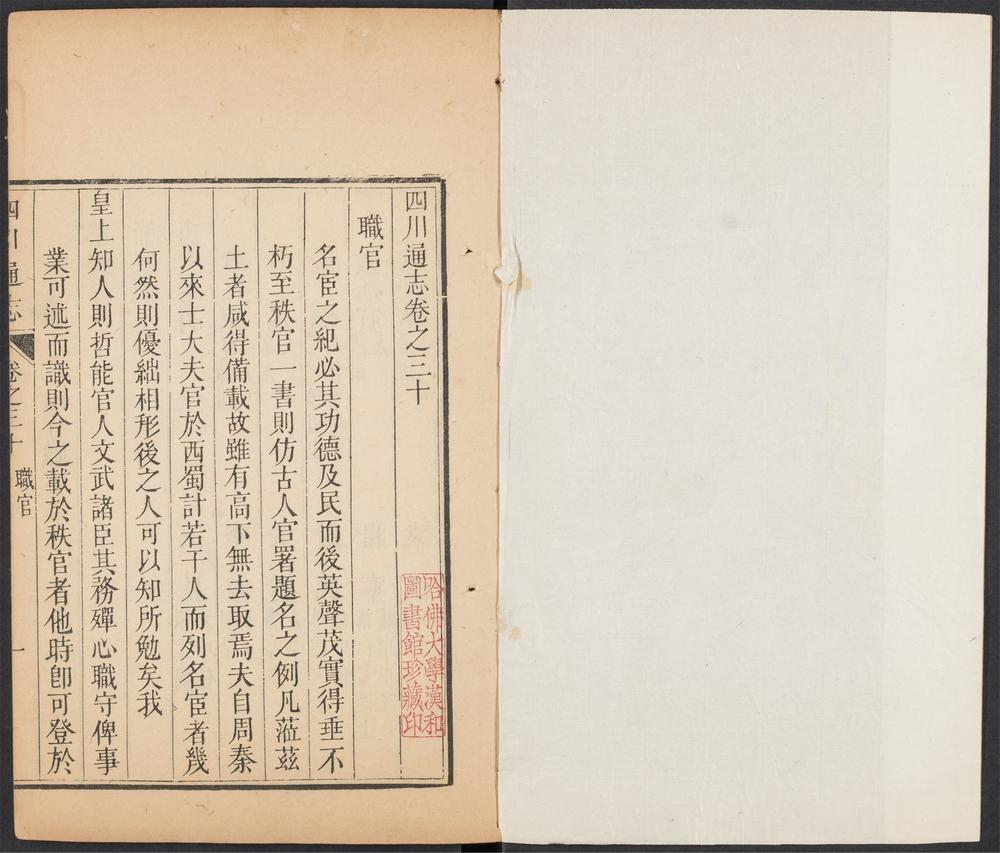 四川通志卷之三十
職官
名宦之紀必其功德及民而後英聲茂實得垂不
朽至秩官一書則仿古人官署題名之例凡蒞茲
土者咸得備載故雖有高下無去取焉夫自周秦
以來士大夫官於西蜀計若干人而列名宦者幾
何然則優絀相形後之人可以知所勉矣我
皇上知人則哲能官人文武諸臣其務殫心職守俾事
業可述而識則今之載於秩官者他時卽可登於
四川通志
卷之三十
職官
一
哈佛大學漢和
圖書館珍藏印